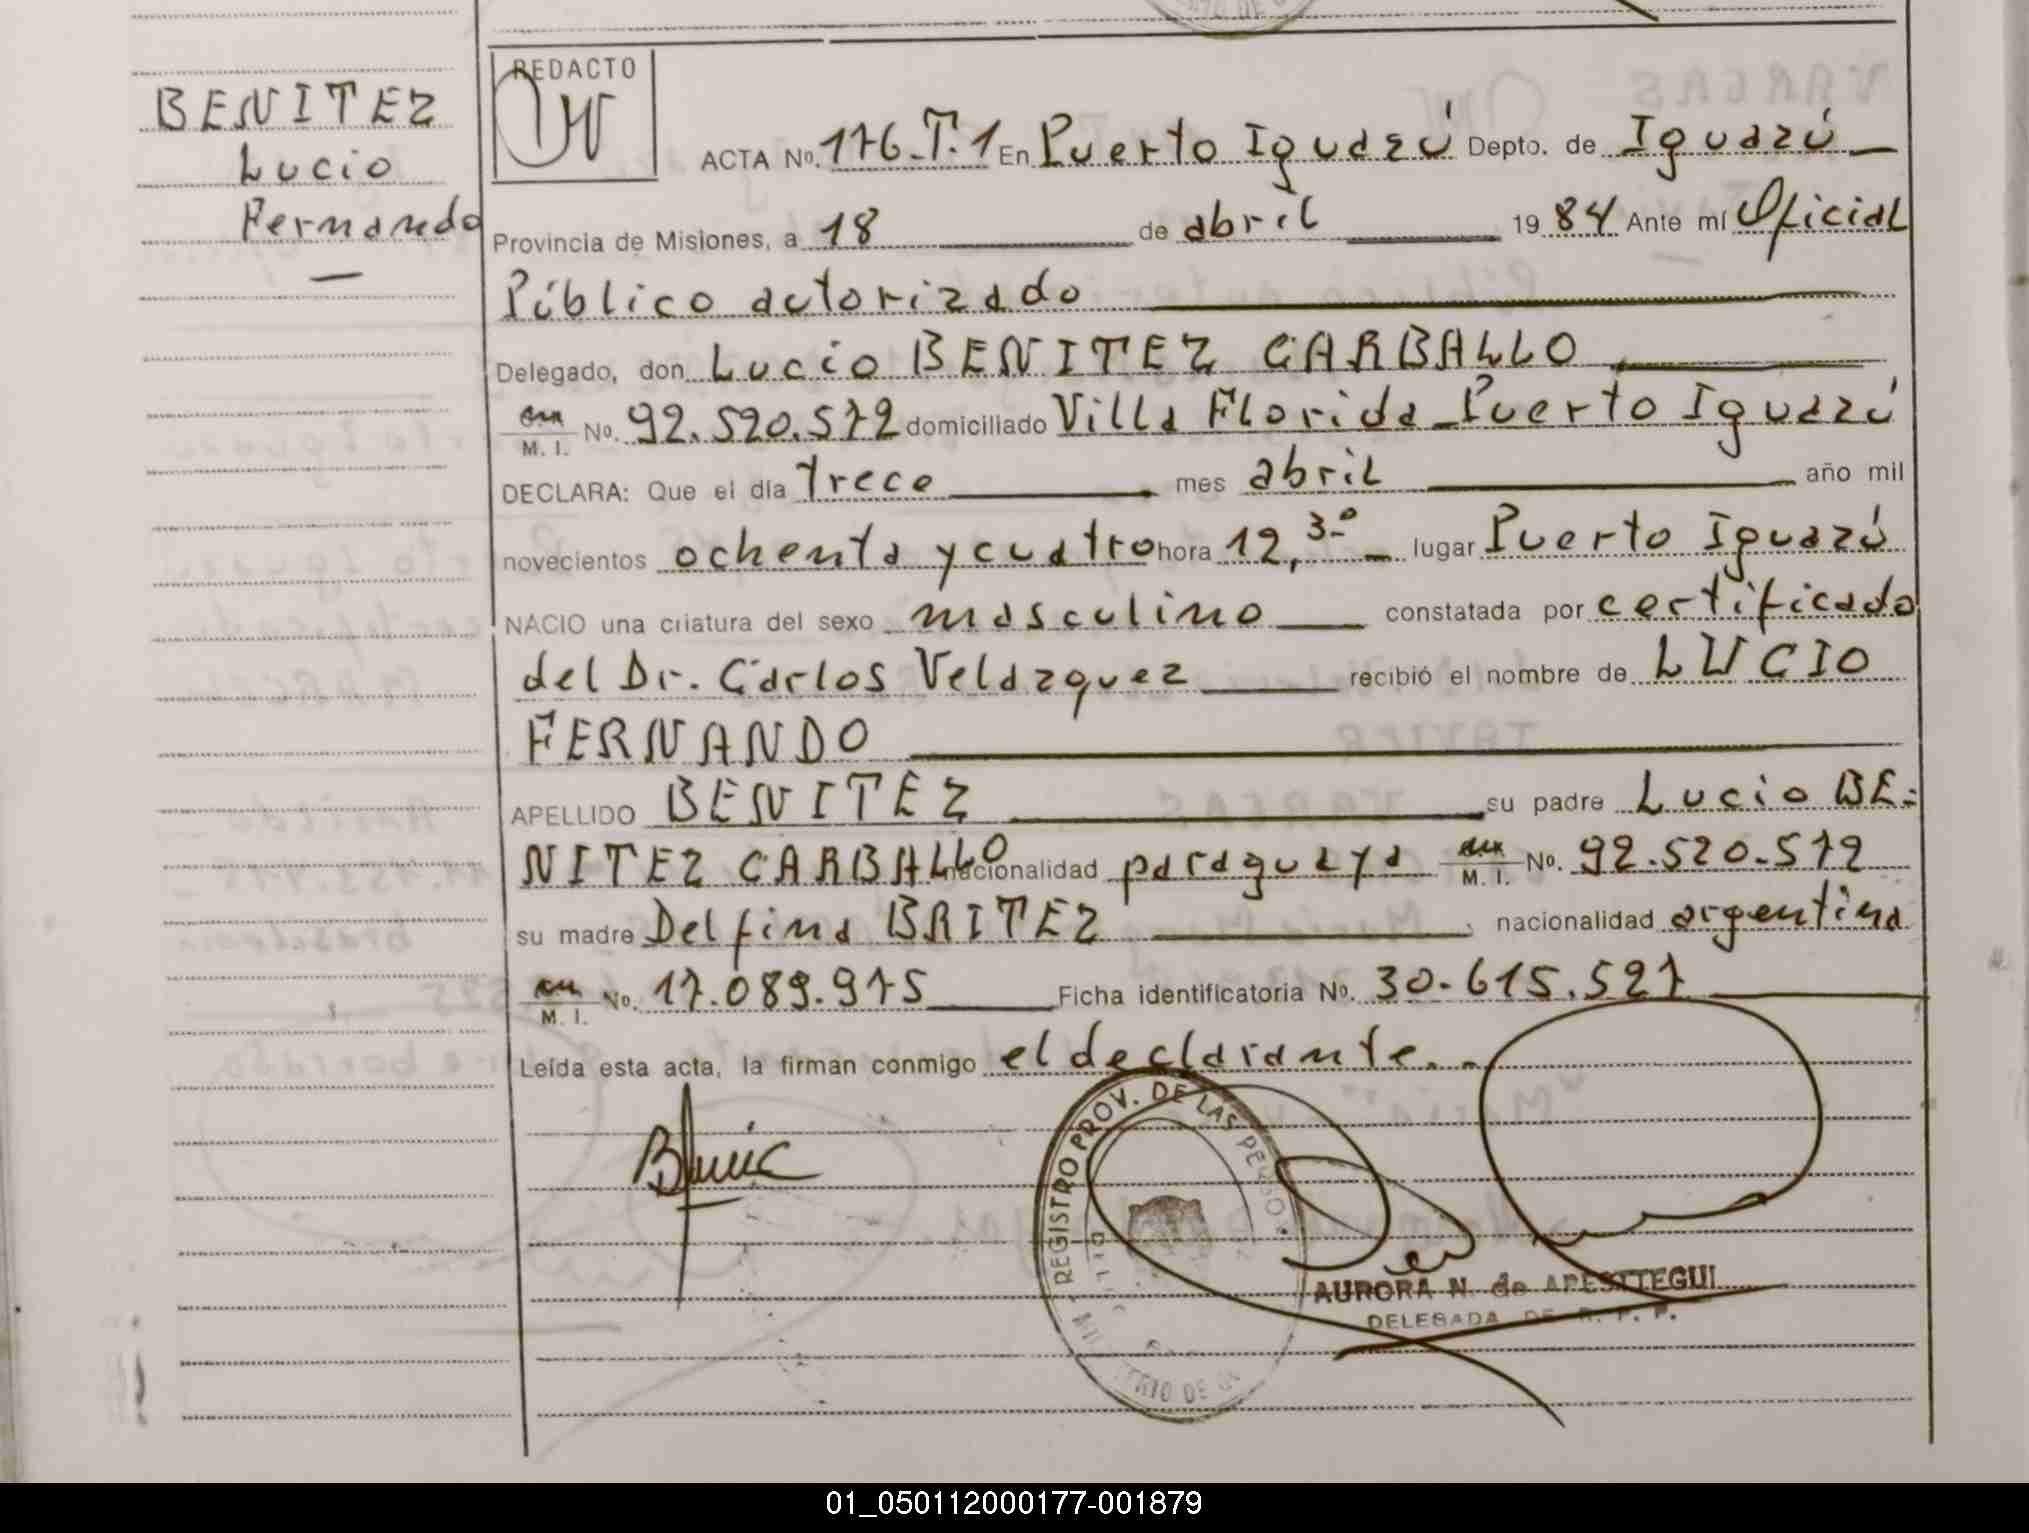 REDACTO
BENITEZ
Lucio
Fernando
ACTA No. 176.T.1 En Puerto Iguazú Depto. de Iguazú
Provincia de Misiones, a 18 de abril 1984 Ante mí Oficial
Público autorizado
Delegado, don Lucio BENITEZ CARBALLO
M. I. No. 92.520.572 domiciliado Villa Florida Puerto Iguazú
DECLARA: Que el día trece mes abril año mil
novecientos ochenta y cuatro hora 12,30 lugar Puerto Iguazú
NACIO una criatura del sexo masculino constatada por certificado
del Dr. Carlos Velazquez recibió el nombre de LUCIO
FERNANDO
APELLIDO BENITEZ su padre Lucio BE-
NITEZ CARBALLO nacionalidad paraguaya M. I. No. 92.520.572
su madre Delfina BRITEZ nacionalidad argentina
M. I. No. 17.089.975 Ficha identificatoria No. 30.615.527
Leída esta acta, la firman conmigo el declarante.
REGISTRO PROV. DE LAS PERSON
AURORA N. de APESTTEGUI
DELEGADA DE R. P. P.
01_050112000177-001879